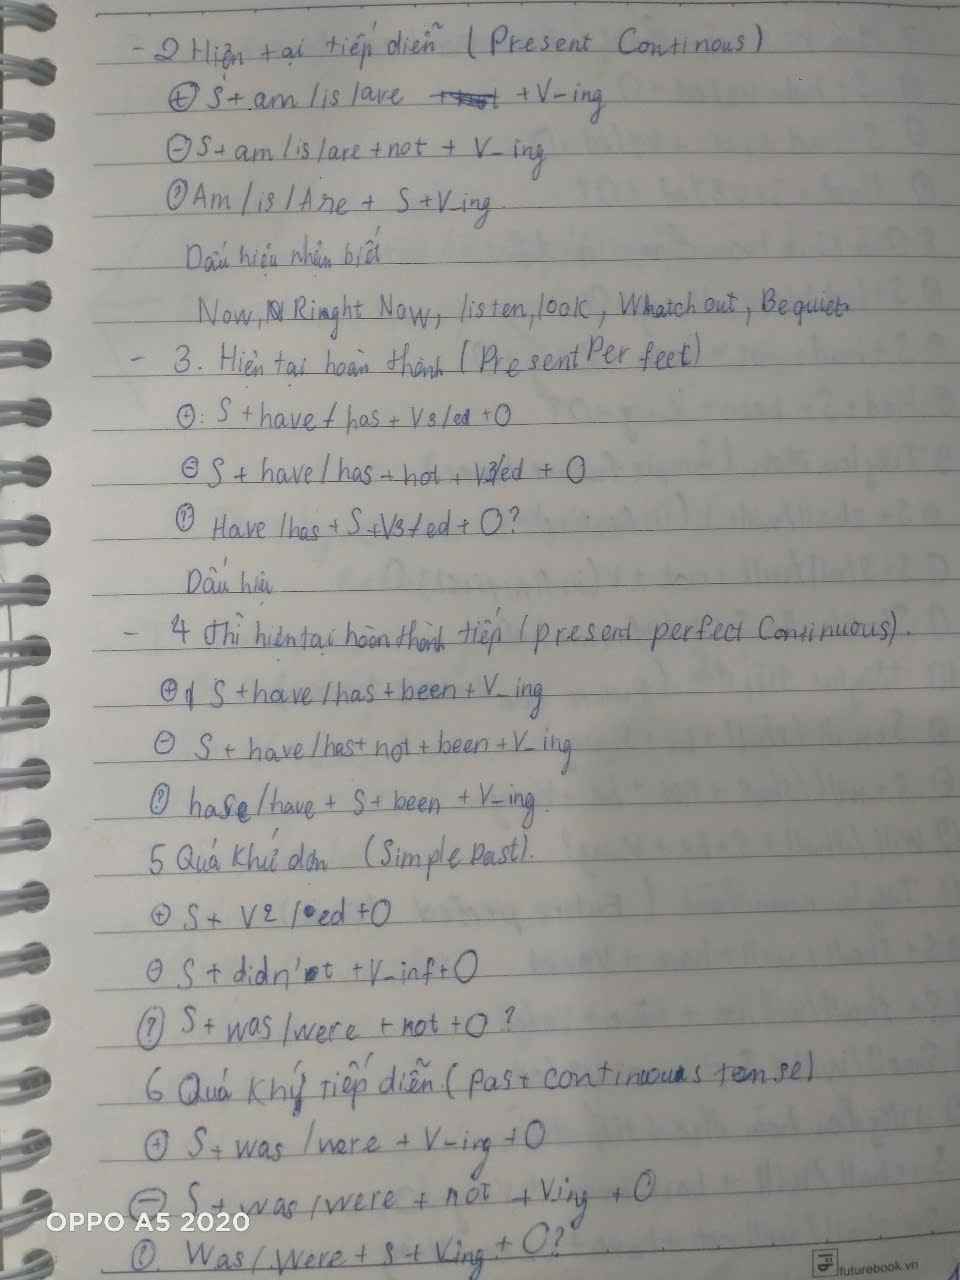 - 2 Hiện tại tiếp diễn (Present Continous)
(+) S + am / is / are + V-ing
(-) S + am / is / are + not + V-ing
(?) Am / is / Are + S + V-ing
Dấu hiệu nhận biết
Now, Ringht Now, listen, look, Whatch out, Be quiet
- 3. Hiện tại hoàn thành (Present Perfect)
(+): S + have / has + V3/ed + O
(-) S + have / has + not + V3/ed + O
(?) Have / has + S + V3/ed + O?
Dấu hiệu
- 4 thì hiện tại hoàn thành tiếp (present perfect Continuous).
(+) S + have / has + been + V-ing
(-) S + have / has + not + been + V-ing
(?) hase / have + S + been + V-ing.
5 Quá khứ đơn (Simple Past).
(+) S + V2 / ed + O
(-) S + didn't + V-inf + O
(?) S + was / were + not + O?
6 Quá khứ tiếp diễn (past continuous tense)
(+) S + was / were + V-ing + O
(-) S + was / were + not + Ving + O
(?) Was / Were + S + Ving + O?
OPPO A5 2020
futurebook.vn